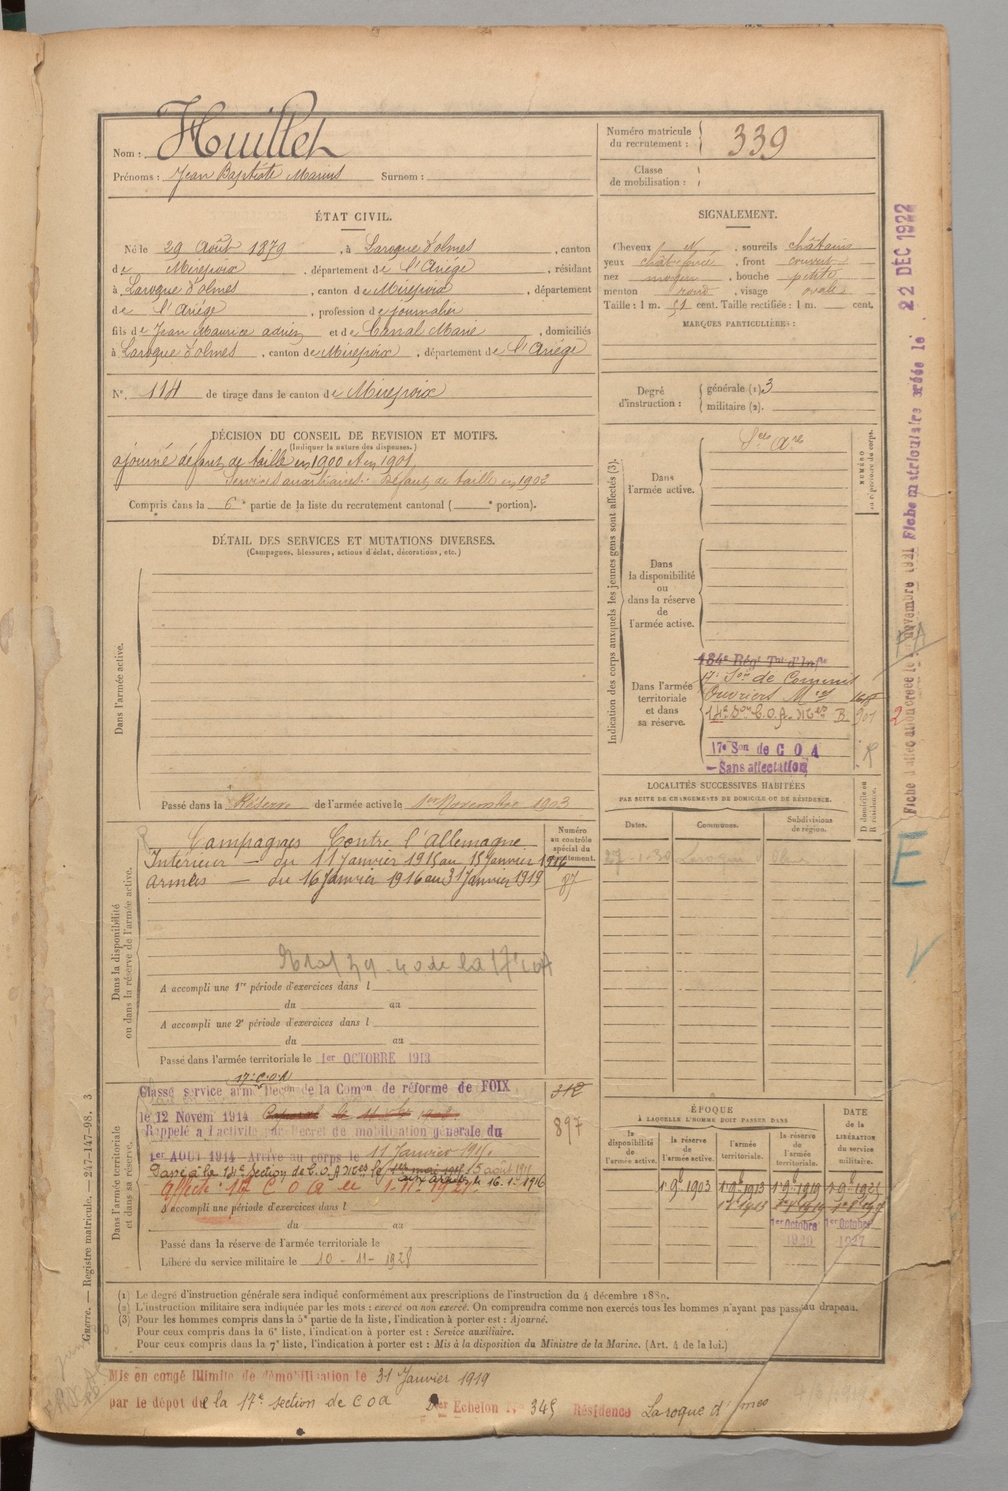 Nom : Huillet
Prénoms : Jean Baptiste Marius Surnom :
Numéro matricule du recrutement : 339
Classe de mobilisation :
ÉTAT CIVIL.
Né le 29 Août 1879, à Laroque d'olmes, canton
de Mirepoix, département de l'Ariège, résidant
à Laroque d'olmes, canton de Mirepoix, département
de l'Ariège, profession de journalier
fils de Jean Maurice adrien et de Canal Marie, domiciliés
à Laroque d'olmes, canton de Mirepoix, département de l'Ariège
N° 114 de tirage dans le canton de Mirepoix
SIGNALEMENT.
Cheveux, sourcils châtains
yeux, front couvert
nez moyen, bouche petite
menton rond, visage ovale
Taille : 1 m. 51 cent. Taille rectifiée : 1 m. cent.
MARQUES PARTICULIÈRES :
Degré d'instruction : générale (1) 3
militaire (2).
DÉCISION DU CONSEIL DE REVISION ET MOTIFS.
(Indiquer la nature des dispenses.)
ajourné défaut de taille en 1900 et en 1901
Services auxiliaires défaut de taille en 1902
Compris dans la 6e partie de la liste du recrutement cantonal ( e portion).
DÉTAIL DES SERVICES ET MUTATIONS DIVERSES.
(Campagnes, blessures, actions d'éclat, décorations, etc.)
Dans l'armée active.
Passé dans la Réserve de l'armée active le 1er Novembre 1903
Indication des corps auxquels les jeunes gens sont affectés (3).
NUMÉRO au répertoire du corps.
Dans l'armée active.
Dans la disponibilité ou dans la réserve de l'armée active.
Dans l'armée territoriale et dans sa réserve.
184e Régt Tal d'Infie
17e Son de Commis
Ouvriers Mres
17e Son de C O A
— Sans affectation
LOCALITÉS SUCCESSIVES HABITÉES
PAR SUITE DE CHANGEMENTS DE DOMICILE OU DE RÉSIDENCE.
Dates. Communes. Subdivisions de région. D domicile ou R résidence.
27-1-30 Laroque d'Olmes
Dans la disponibilité ou dans la réserve de l'armée active.
Numéro au contrôle spécial du recrutement.
Campagnes Contre l'Allemagne.
Intérieur — du 11 Janvier 1915 au 15 Janvier 1916
Armées — du 16 Janvier 1916 au 31 Janvier 1919
87
A accompli une 1re période d'exercices dans l
du au
A accompli une 2e période d'exercices dans l
du au
Passé dans l'armée territoriale le 1er OCTOBRE 1913
Dans l'armée territoriale et dans sa réserve.
17e C.O.A
Classé service armé Décon de la Comon de réforme de FOIX
le 12 Novem 1914
Rappelé à l'activité par Décret de mobilisation générale du
1er AOUT 1914 - Arrivé au corps le 11 Janvier 1915
Passé à la 14e Section de C.O.A Mres le 15 août 1915
aux armées le 16.1er 1916
Affecté 17 C O A le 1-11-1921
312
897
A accompli une période d'exercices dans l
du au
Passé dans la réserve de l'armée territoriale le
Libéré du service militaire le 10-11-1928
ÉPOQUE
À LAQUELLE L'HOMME DOIT PASSER DANS
la disponibilité de l'armée active. la réserve de l'armée active. l'armée territoriale. la réserve de l'armée territoriale.
DATE DE LA LIBÉRATION du service militaire.
1er 9bre 1903 1er 9bre 1913 1er 9bre 1919 1er 9bre 1925
1er Octobre 1920 1er Octobre 1927
(1) Le degré d'instruction générale sera indiqué conformément aux prescriptions de l'instruction du 4 décembre 1889.
(2) L'instruction militaire sera indiquée par les mots : exercé ou non exercé. On comprendra comme non exercés tous les hommes n'ayant pas passé au drapeau.
(3) Pour les hommes compris dans la 5e partie de la liste, l'indication à porter est : Ajourné.
Pour ceux compris dans la 6e liste, l'indication à porter est : Service auxiliaire.
Pour ceux compris dans la 7e liste, l'indication à porter est : Mis à la disposition du Ministre de la Marine. (Art. 4 de la loi.)
Mis en congé illimité de démobilisation le 31 Janvier 1919
par le dépôt de la 17e section de C O A Echelon No 345 Résidence Laroque d'olmes
Guerre. — Registre matricule. — 247-147-98. 3
Fiche matriculaire créée le 22 DÉC 1922
E